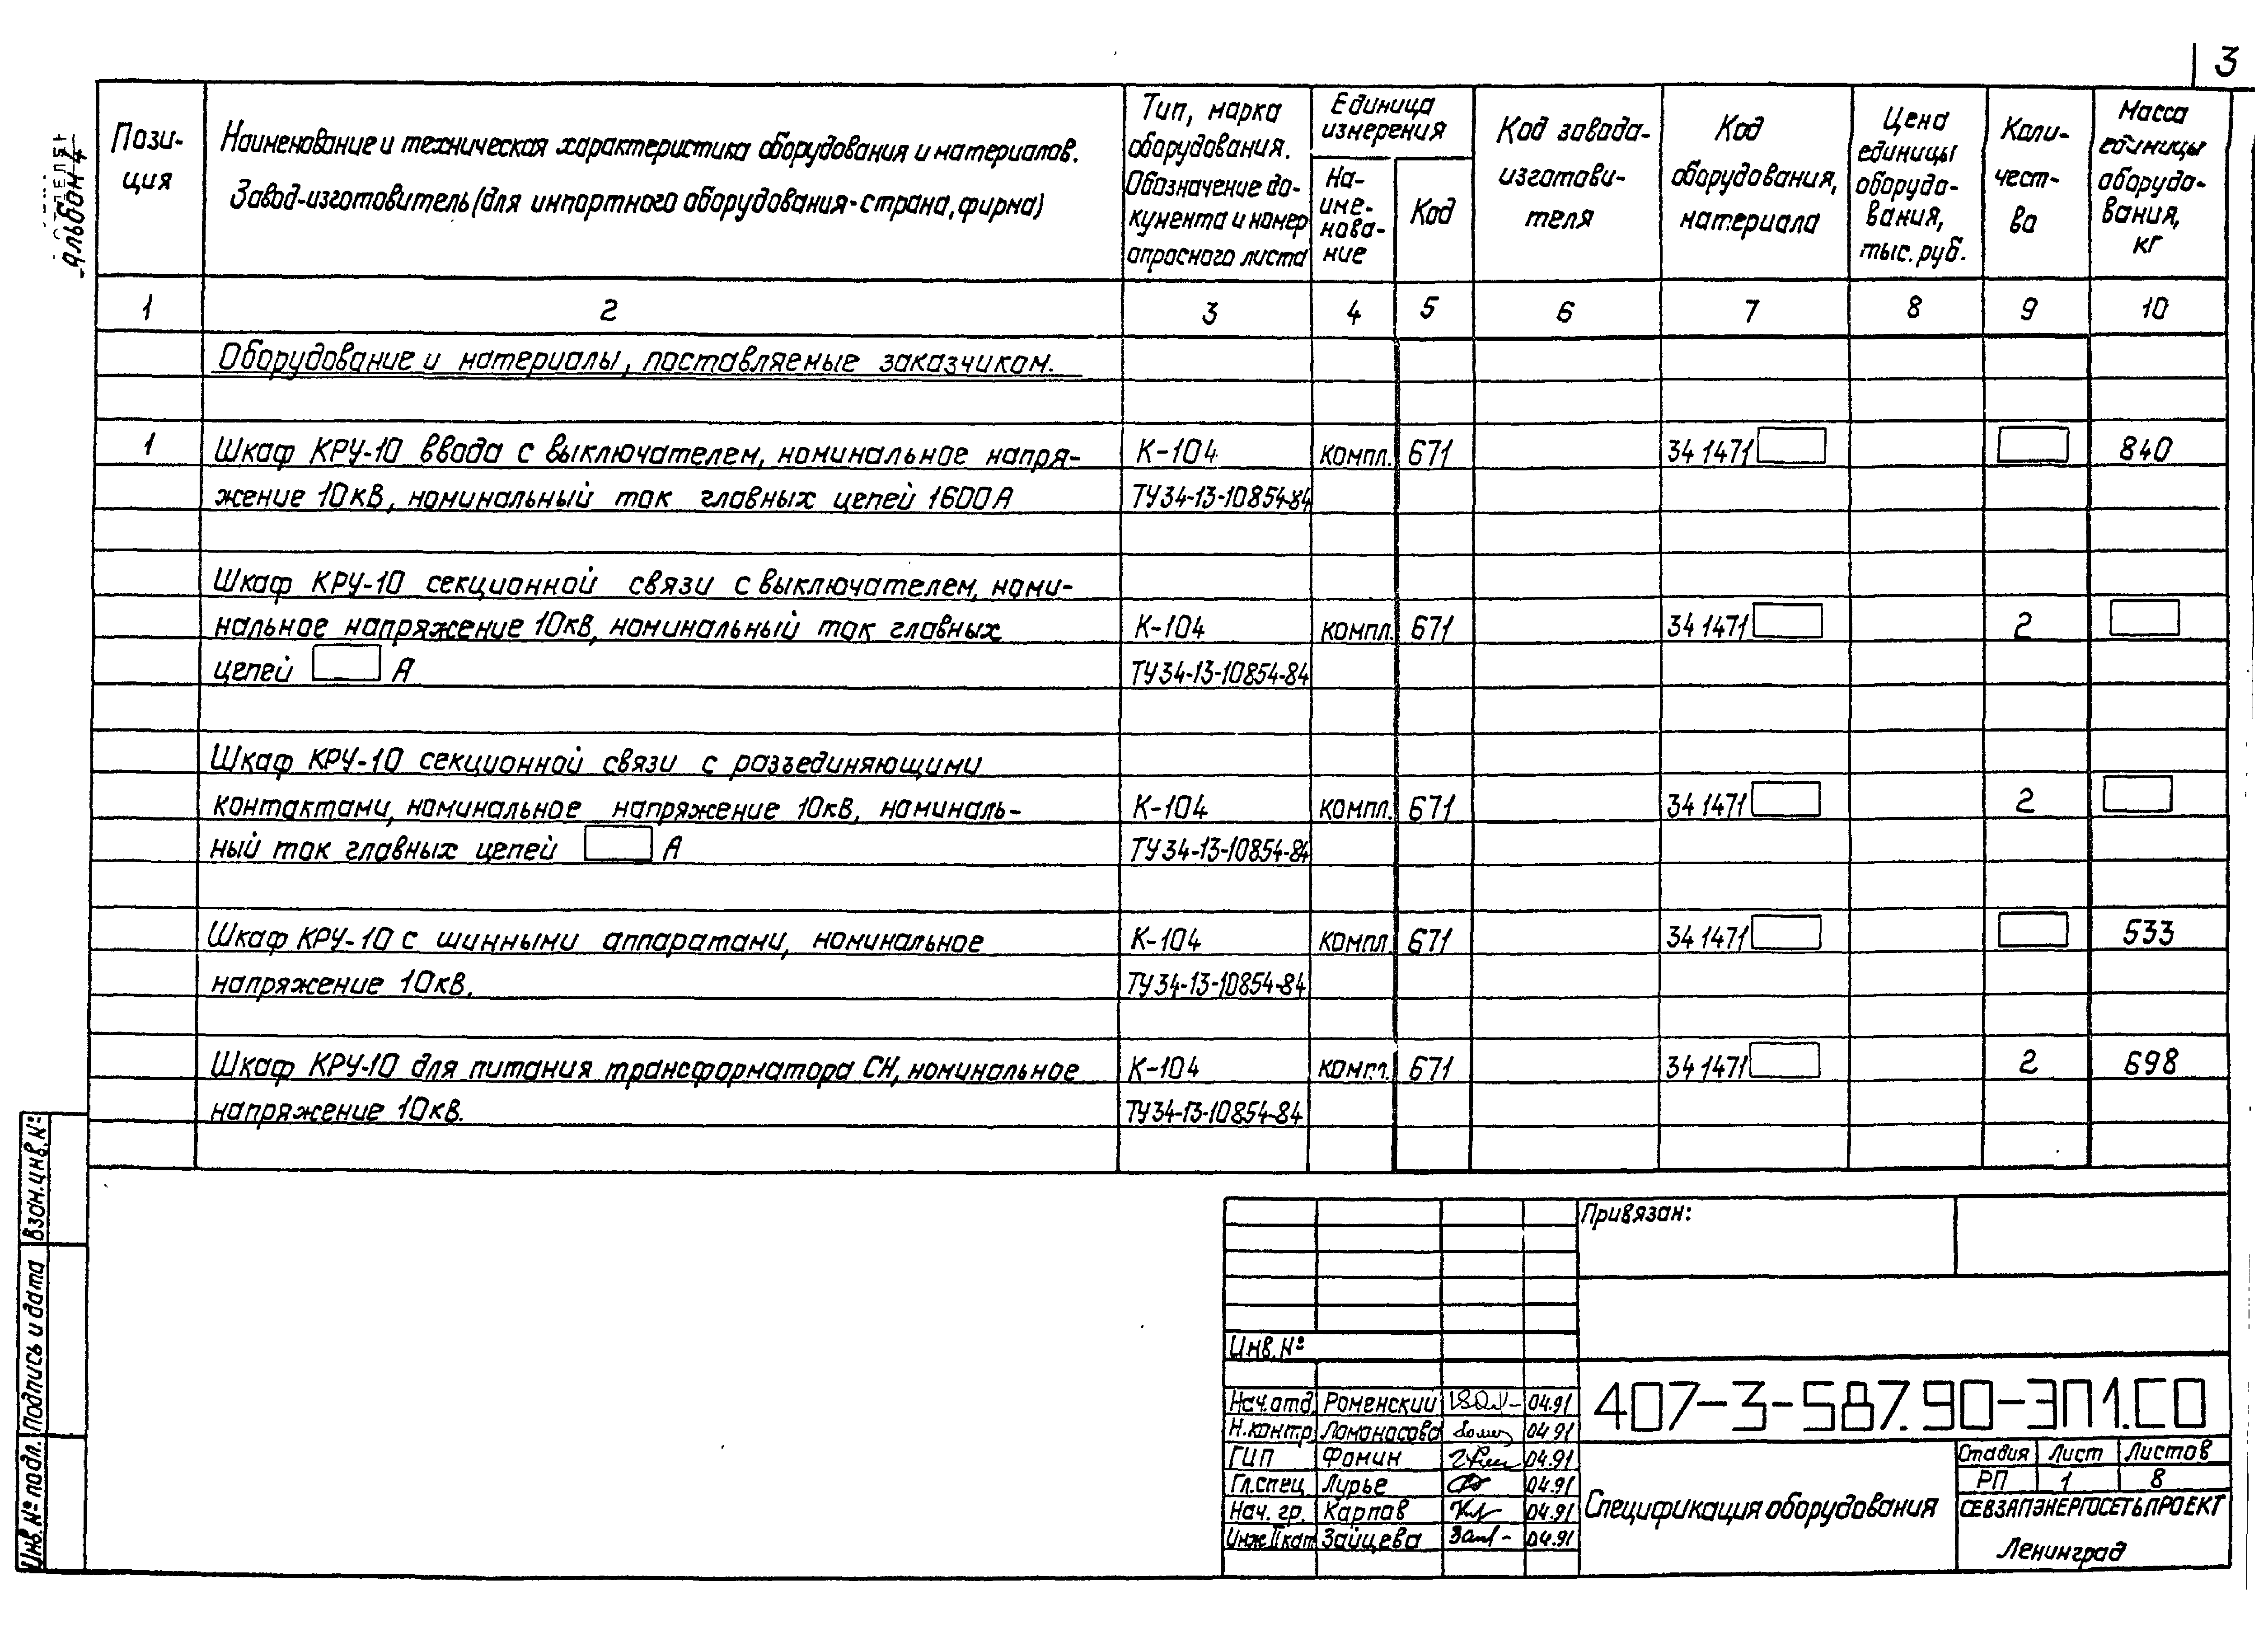 3
Альбом 4
Пози-
ция
Наименование и техническая характеристика оборудования и материалов.
Завод-изготовитель (для импортного оборудования-страна, фирма)
Тип, марка
оборудования.
Обозначение до-
кумента и номер
опросного листа
Единица
измерения
На-
име-
нова-
ние
Код
Код завода-
изготови-
теля
Код
оборудования,
материала
Цена
единицы
оборудо-
вания,
тыс. руб.
Коли-
чест-
ва
Масса
единицы
оборудо-
вания,
кг
1 2 3 4 5 6 7 8 9 10
Оборудование и материалы, поставляемые заказчиком.
1 Шкаф КРУ-10 ввода с выключателем, номинальное напря- К-104 компл. 671 34 1471 840
жение 10кВ, номинальный ток главных цепей 1600А ТУ34-13-10854-84
Шкаф КРУ-10 секционной связи с выключателем, номи-
нальное напряжение 10кВ, номинальный ток главных К-104 компл. 671 34 1471 2
цепей А ТУ34-13-10854-84
Шкаф КРУ-10 секционной связи с разъединяющими
контактами, номинальное напряжение 10кВ, номиналь- К-104 компл. 671 34 1471 2
ный ток главных цепей А ТУ34-13-10854-84
Шкаф КРУ-10 с шинными аппаратами, номинальное К-104 компл. 671 34 1471 533
напряжение 10кВ. ТУ34-13-10854-84
Шкаф КРУ-10 для питания трансформатора СН, номинальное К-104 компл. 671 34 1471 2 698
напряжение 10кВ. ТУ34-13-10854-84
Взам.инв.№
Подпись и дата
Инв.№ подл.
Привязан:
Инв.№
Нач.отд. Роменский 04.91
Н.контр. Ломоносова 04.91
ГИП Фомин 04.91
Гл.спец. Лурье 04.91
Нач. гр. Карпов 04.91
Инж.IIкат. Зайцева 04.91
407-3-587.90-ЭП1.СО
Спецификация оборудования
Стадия Лист Листов
РП 1 8
СЕВЗАПЭНЕРГОСЕТЬПРОЕКТ
Ленинград